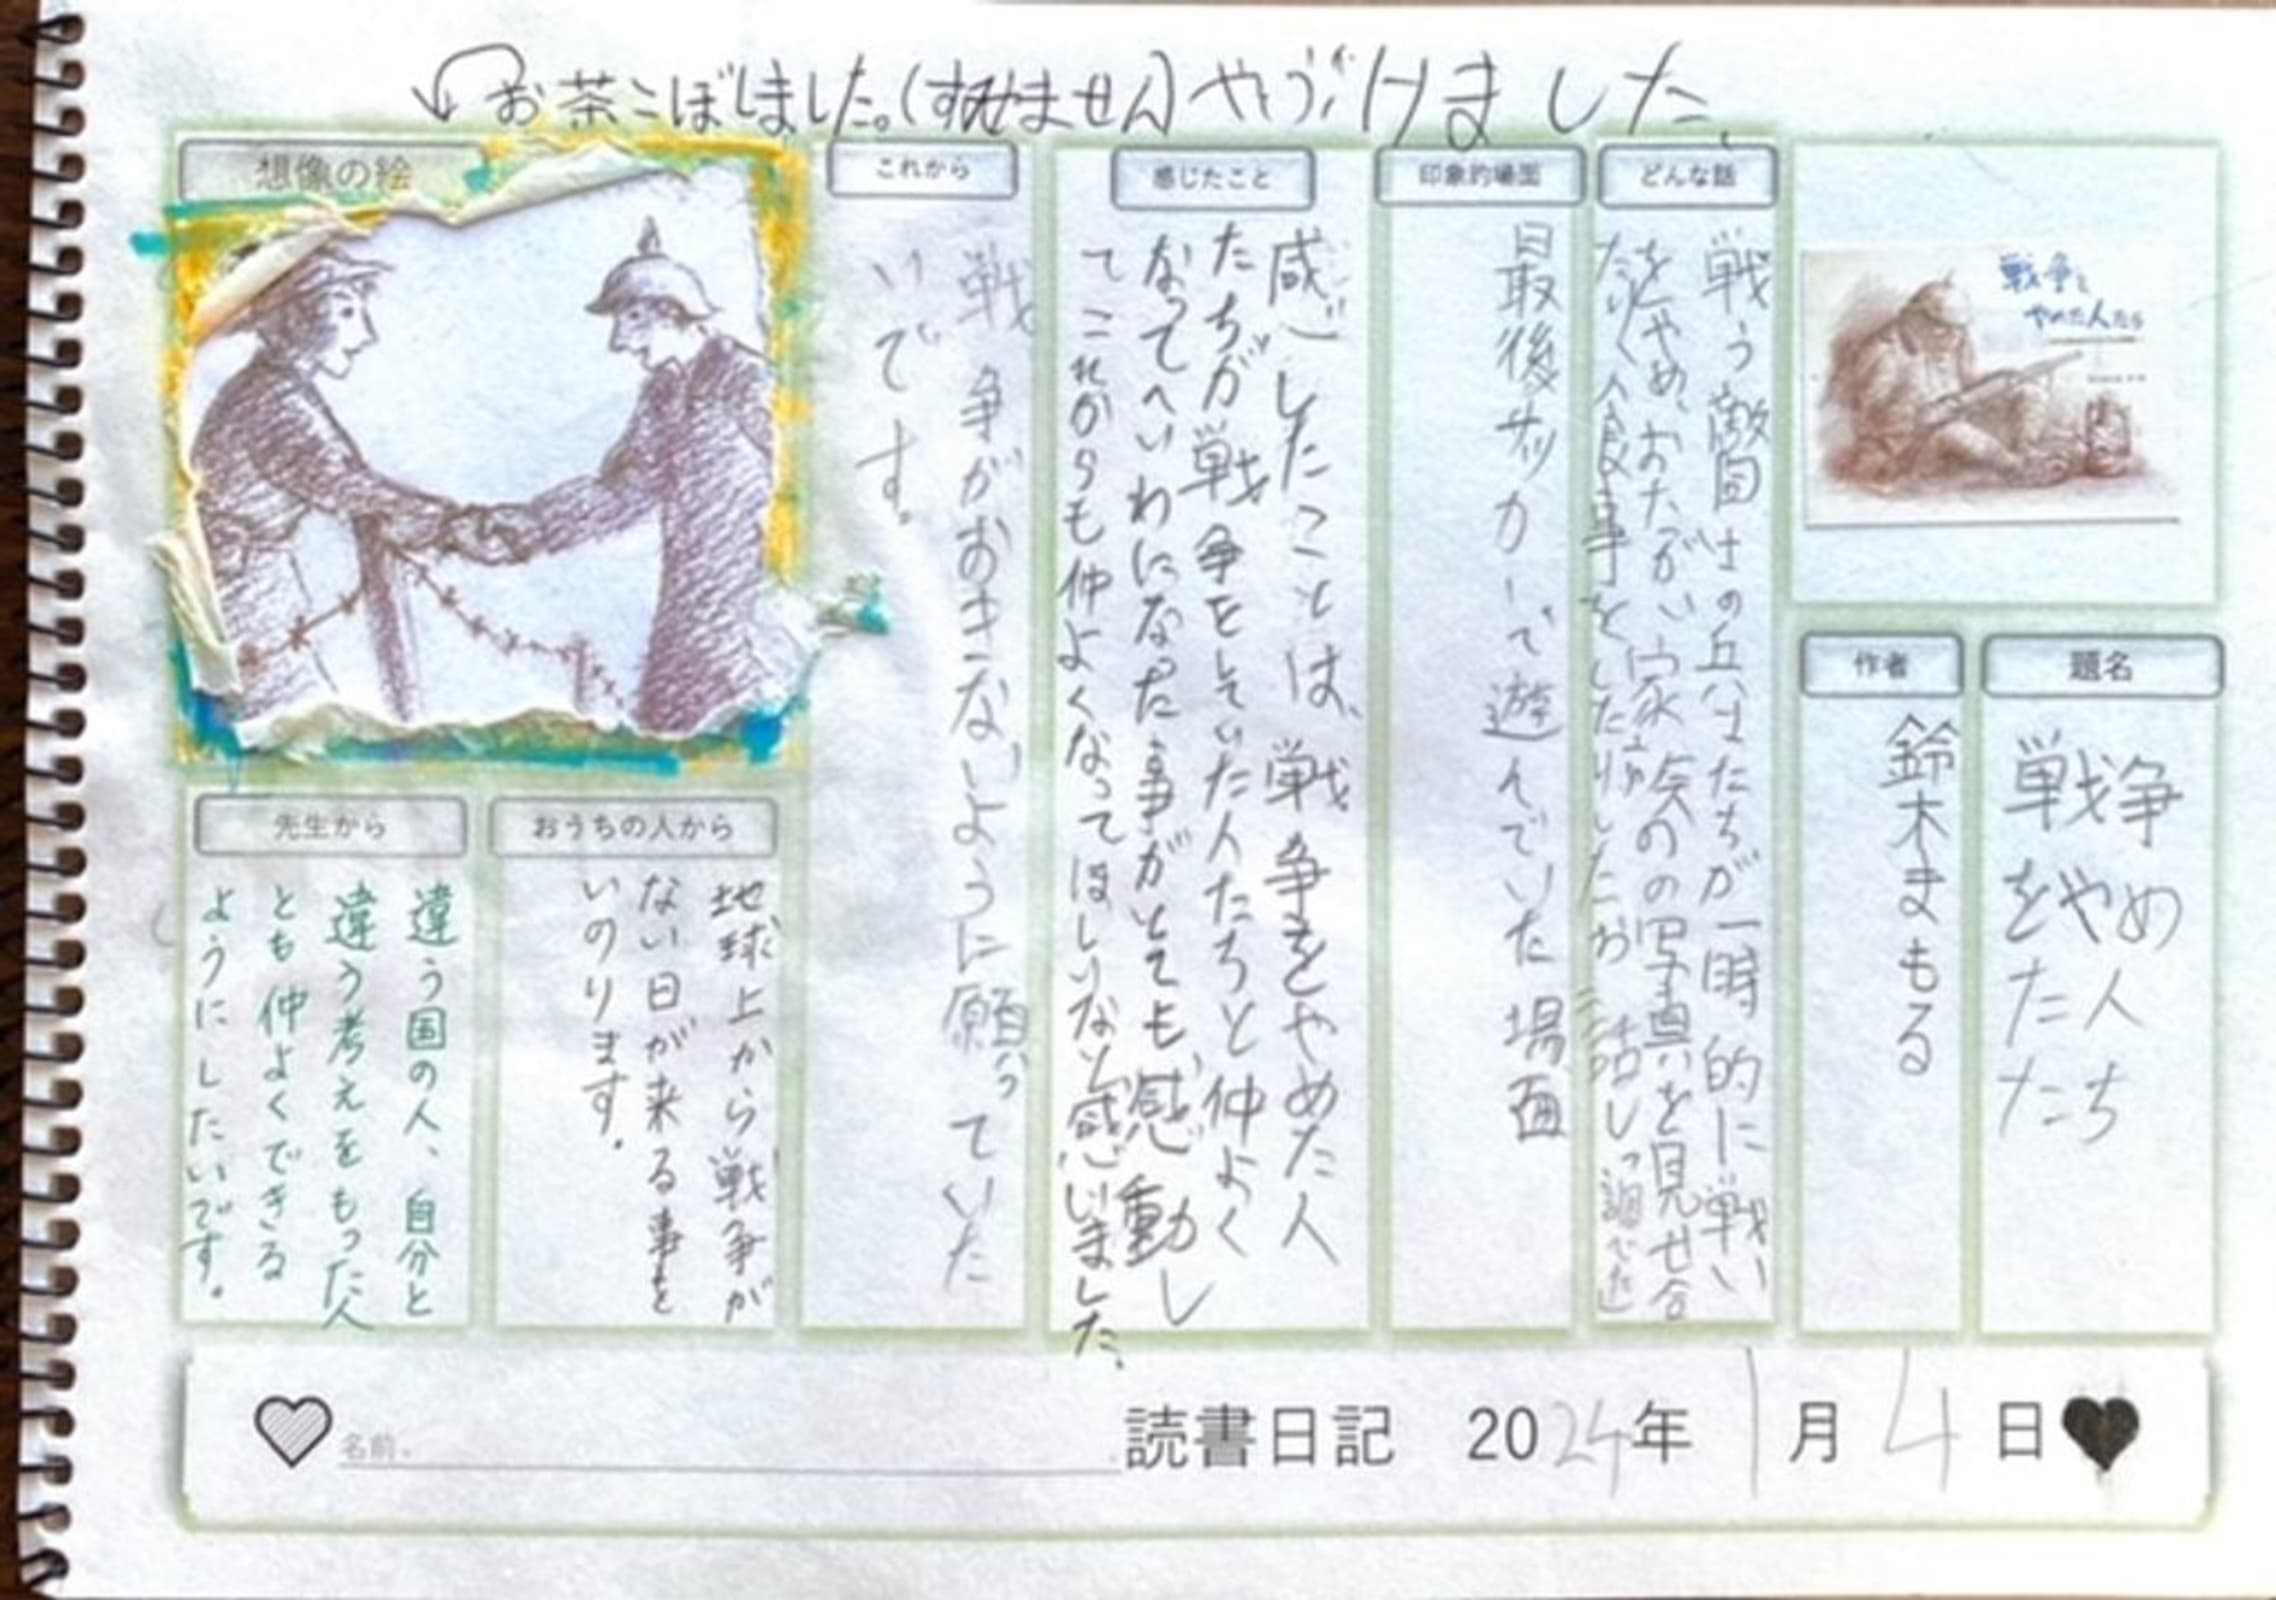 お茶こぼしました。(すみません)やぶけました。
戦争と
やめた人たち
題名
戦争
をやめ
た人
たち
作者
鈴木まもる
どんな話
戦う敵国はの兵士たちが一時的に戦い
をやめ、おたがい家族の写真を見せ合っ
たり、食事をしたりしたお話し。
印象的場面
最後サッカーで遊んでいた場面
感じたこと
感じしたことは、戦争をやめた人
たちが戦争をしていた人たちと仲よく
なってへいわになった事がとても感動し
てこれからも仲よくなってほしいなと感いました。
これから
戦争がおきないように願っていた
いです。
想像の絵
おうちの人から
地球上から戦争が
ない日が来る事を
いのります。
先生から
違う国の人、自分と
違う考えをもった人
とも仲よくできる
ようにしたいです。
名前.
読書日記 2024年1月4日